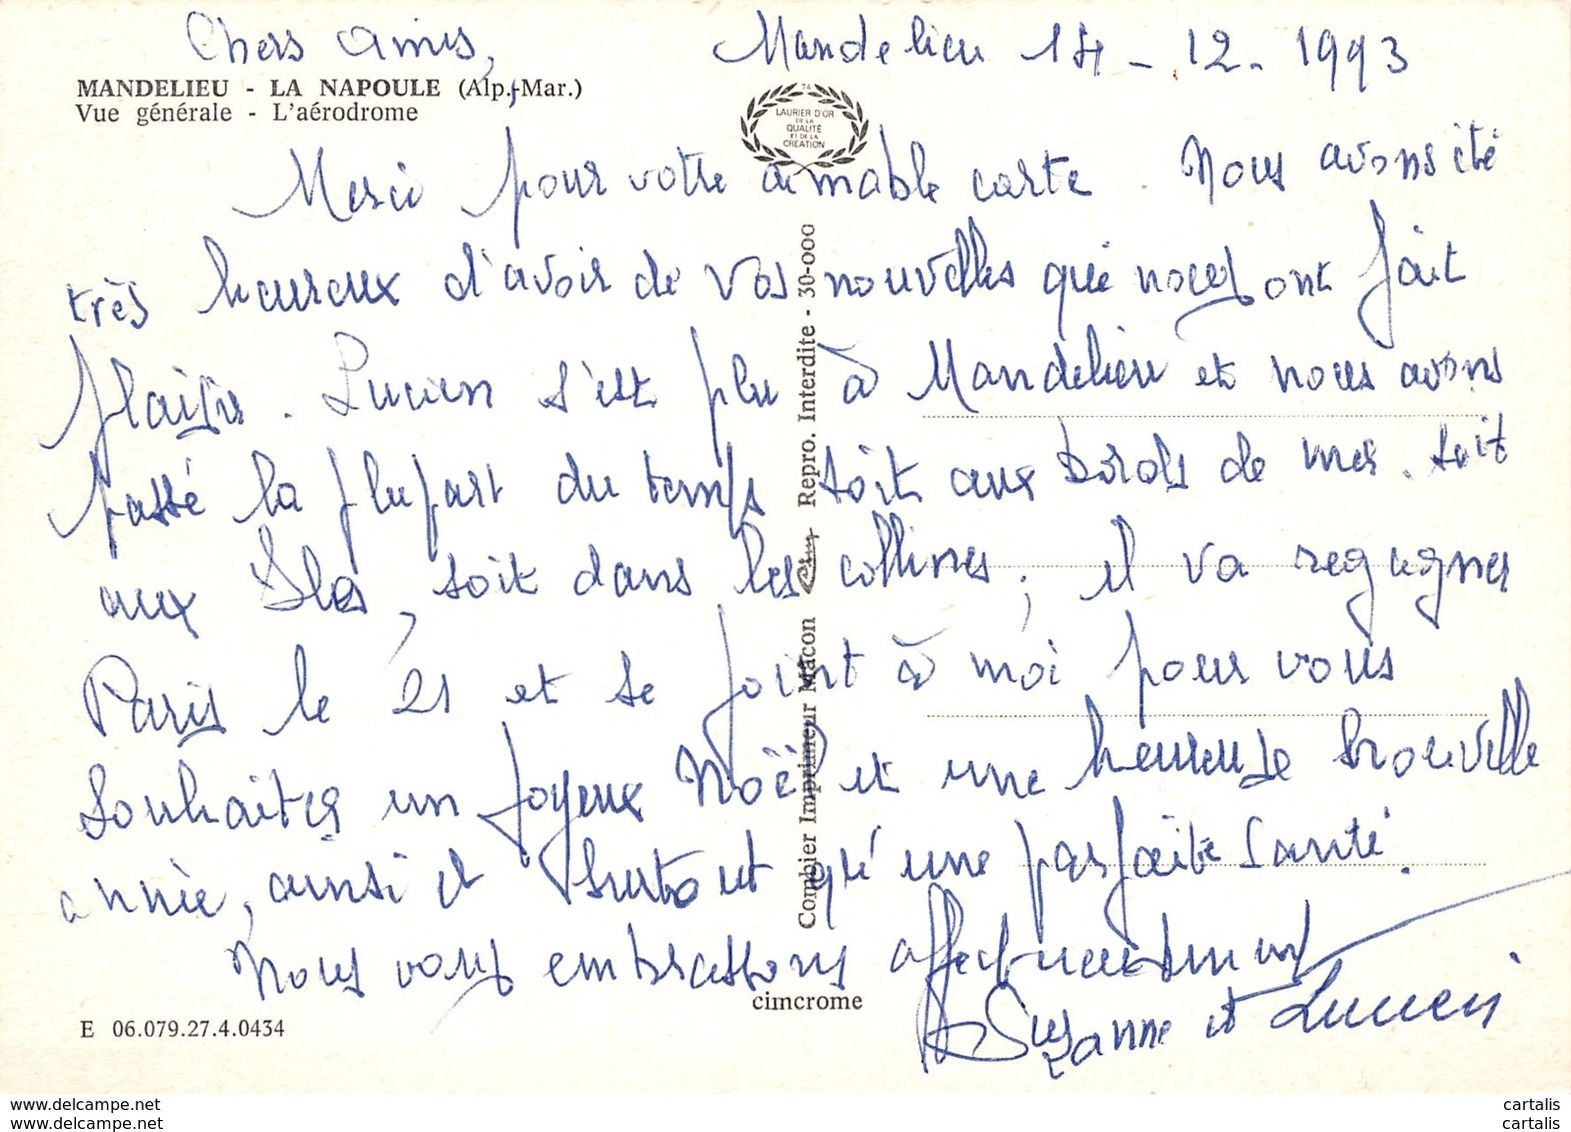 Chers amis,
Mandelieu 14 - 12 - 1993
MANDELIEU - LA NAPOULE (Alp.-Mar.)
Vue générale - L'aérodrome
74
LAURIER D'OR
DE LA
QUALITÉ
ET DE LA
CRÉATION
Merci pour votre aimable carte. Nous avons été
très heureux d'avoir de vos nouvelles qui nous ont fait
plaisir. Lucien s'est plu à Mandelieu et nous avons
passé la plupart du temps soit aux bords de mer. soit
aux Iles, soit dans les collines; il va regagner
Paris le 21 et se joint à moi pour vous
souhaiter un joyeux Noël et une heureuse nouvelle
année, ainsi et surtout qu'une parfaite santé.
Nous vous embrassons affectueusement
Suzanne et Lucien
Combier Imprimeur Mâcon Cim Repro. Interdite - 30-000
cimcrome
E 06.079.27.4.0434
www.delcampe.net
www.delcampe.net
cartalis
cartalis